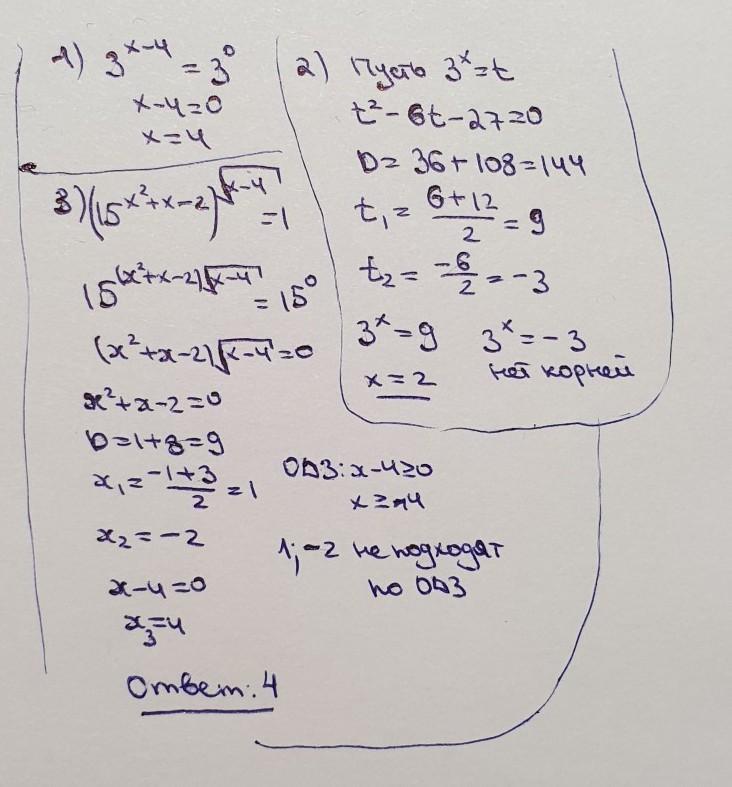 1) 3^{x-4} = 3^0
x-4=0
x=4
2) Пусть 3^x=t
t²-6t-27=0
D= 36+108=144
t₁= \frac{6+12}{2} = 9
t₂= \frac{-6}{2} = -3
3^x=9 3^x=-3
x=2 нет корней
3) (15^{x²+x-2})^{\sqrt{x-4}} =1
15^{(x²+x-2)\sqrt{x-4}} =15^0
(x²+x-2)\sqrt{x-4}=0
x²+x-2=0
D=1+8=9
x₁= \frac{-1+3}{2} =1
x₂=-2
x-4=0
x₃=4
ОДЗ: x-4≥0
x≥4
1;-2 не подходят
по ОДЗ
Ответ: 4